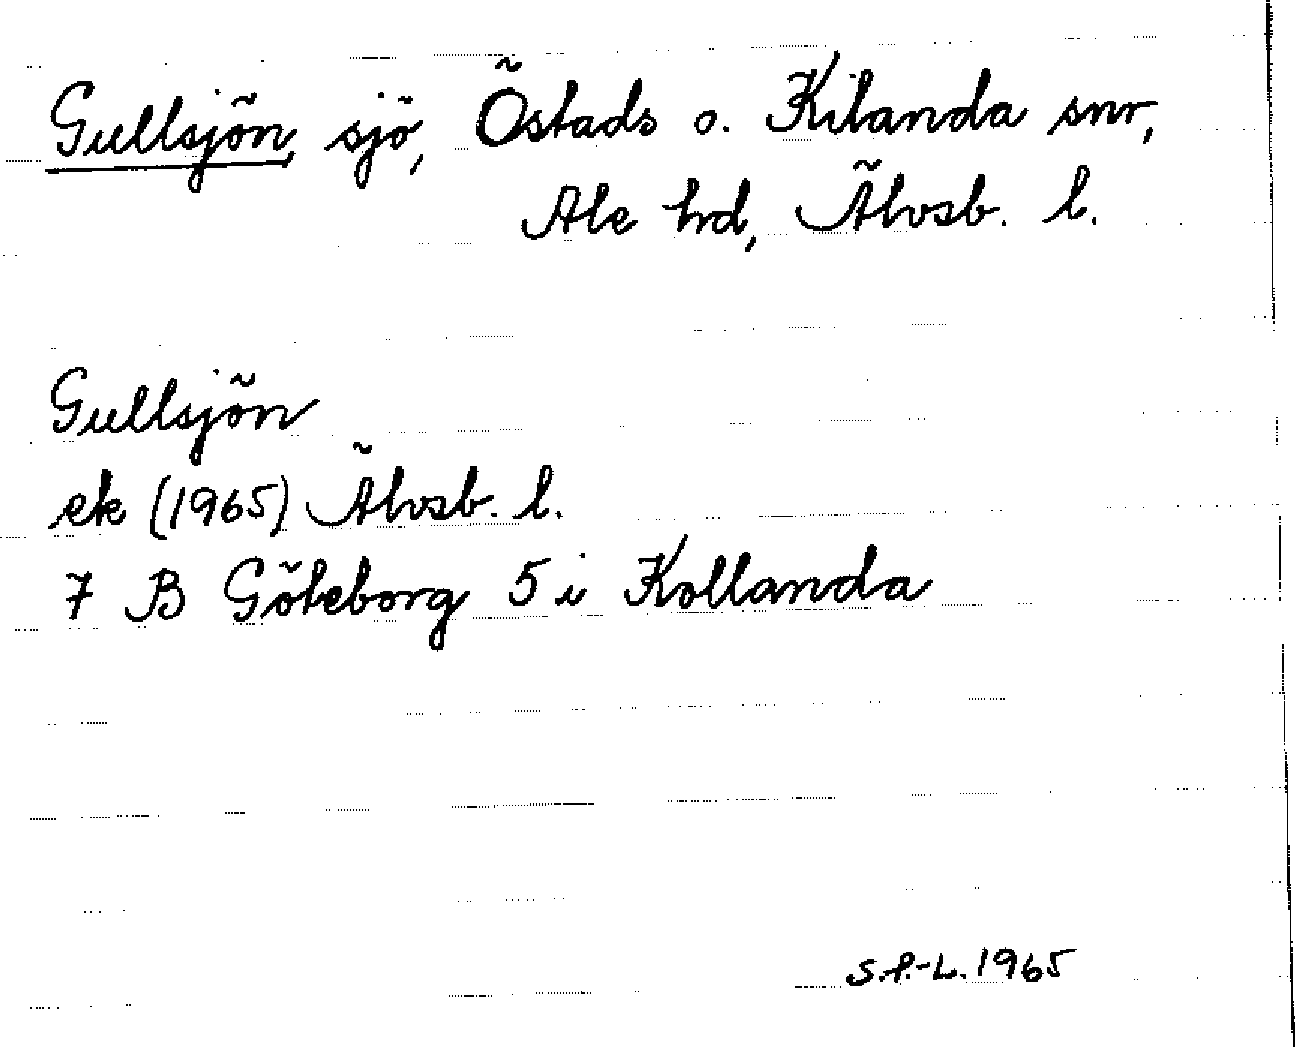 Gullsjön, sjö, Östads o. Kilanda snr,
Ale hrd, Älvsb. l.
Gullsjön
ek (1965) Älvsb. l.
7 B Göteborg 5 i Kollanda
S.P.-L. 1965